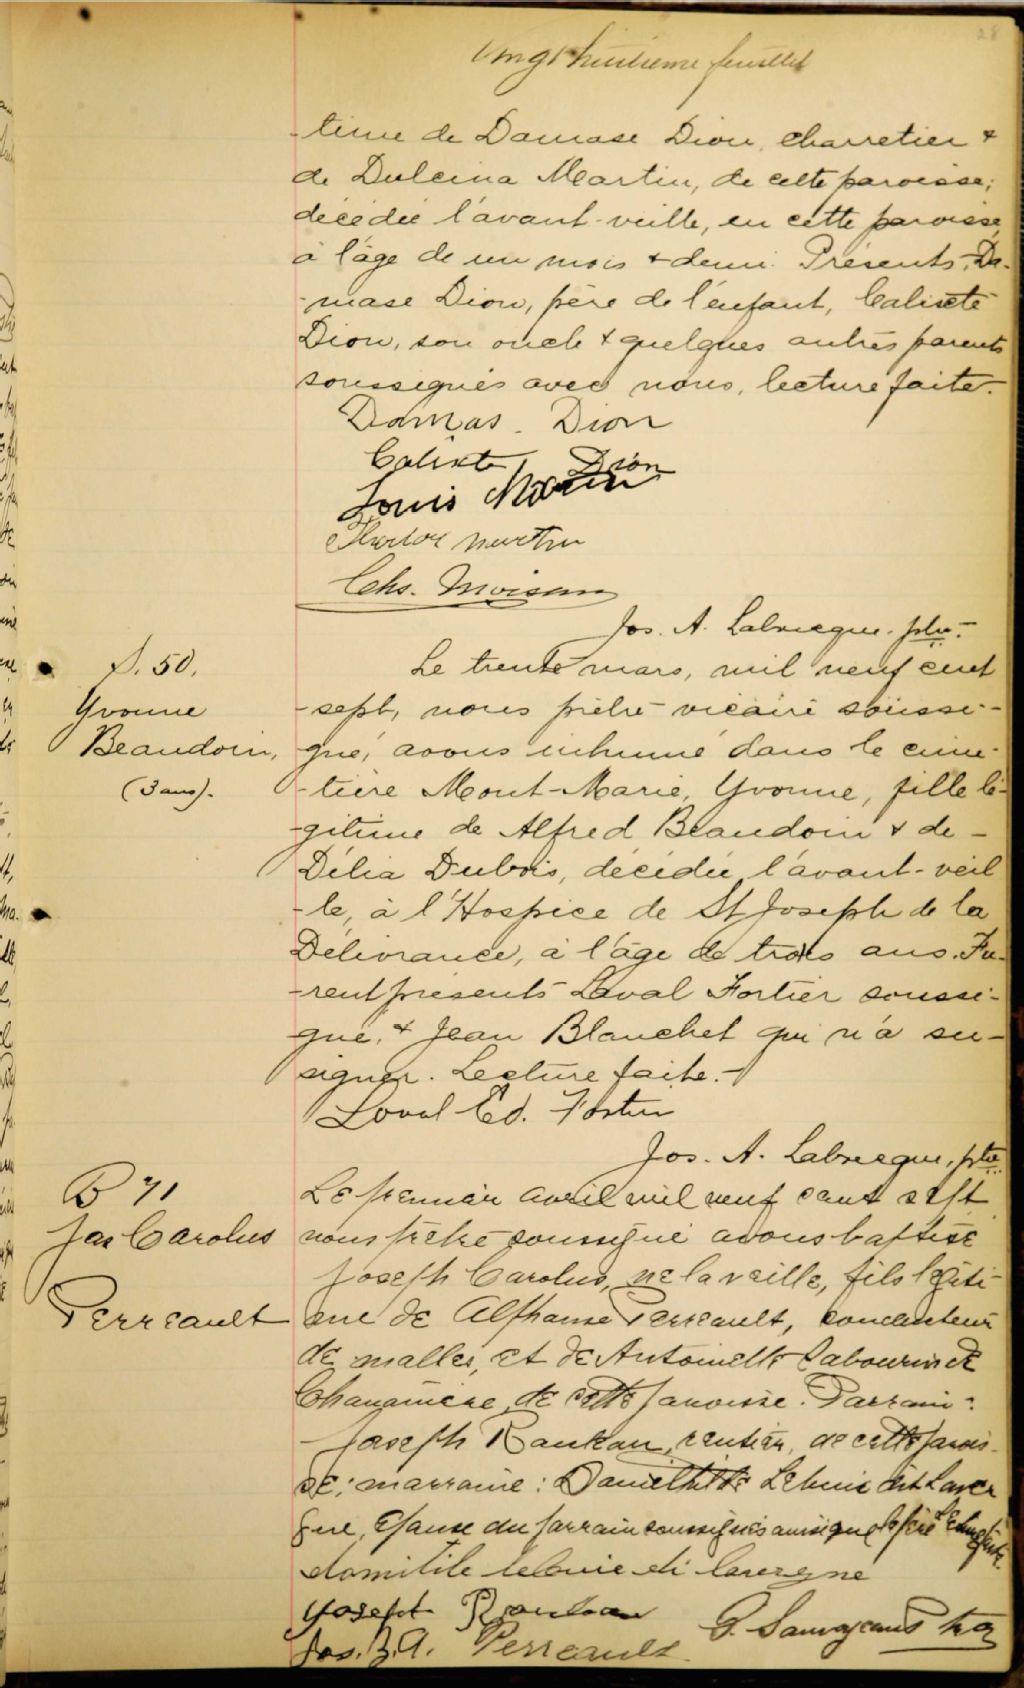 Vingt huitième feuillet
28
-time de Damase Dion, charretier &
de Dulcina Martin, de cette paroisse;
décédée l'avant-veille, en cette paroisse,
à l'âge de un mois & demi. Présents, Da-
-mase Dion, père de l'enfant, Calixte
Dion, son oncle & quelques autres parents
soussignés avec nous, lecture faite.-
Damas. Dion
Calixte Dion
Louis Martin
martin
Chs. Moisan
Jos. A. Labrecque, ptre.-
S. 50.
Yvonne
Beaudoin,
(3 ans).
Le trente mars, mil neuf cent
-sept, nous prêtre-vicaire soussi-
gné, avons inhumé dans le cime-
-tière Mont-Marie, Yvonne, fille lé-
-gitime de Alfred Beaudoin & de -
Délia Dubois, décédée, l'avant-veil
-le, à l'Hospice de St Joseph de la
Délivrance, à l'âge de trois ans. Fu-
-rent présents Laval Fortier soussi-
gné, & Jean Blanchet qui n'a su -
signer. Lecture faite.-
Laval Ed. Fortier
Jos. A. Labrecque, ptre
B 71
Jos Carolus
Perreault
Le premier avril mil neuf cent sept
nous prêtre soussigné avons baptisé
Joseph Carolus, né la veille, fils légiti-
me de Alphonse Perreault, conducteur
de malles, et de Antoinette Sabourin de
Chaumière, de cette paroisse. Parrain:
Joseph Rouleau, rentier, de cette parois-
se; marraine: Lebuis dit Laver
gne, épouse du parrain soussignés ainsi que le père
domitile lebuie di lavergne
Yosept Rouleau
Jos. B.A. Perreault
G. Sauvageau Ptre